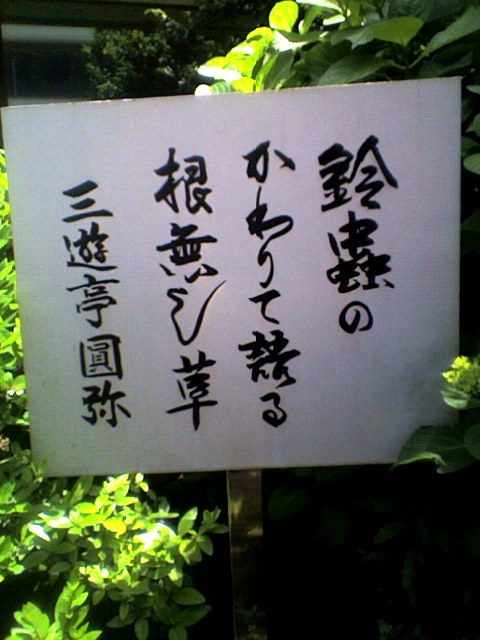 鈴蟲の
かわりて語る
根無し草
三遊亭圓弥